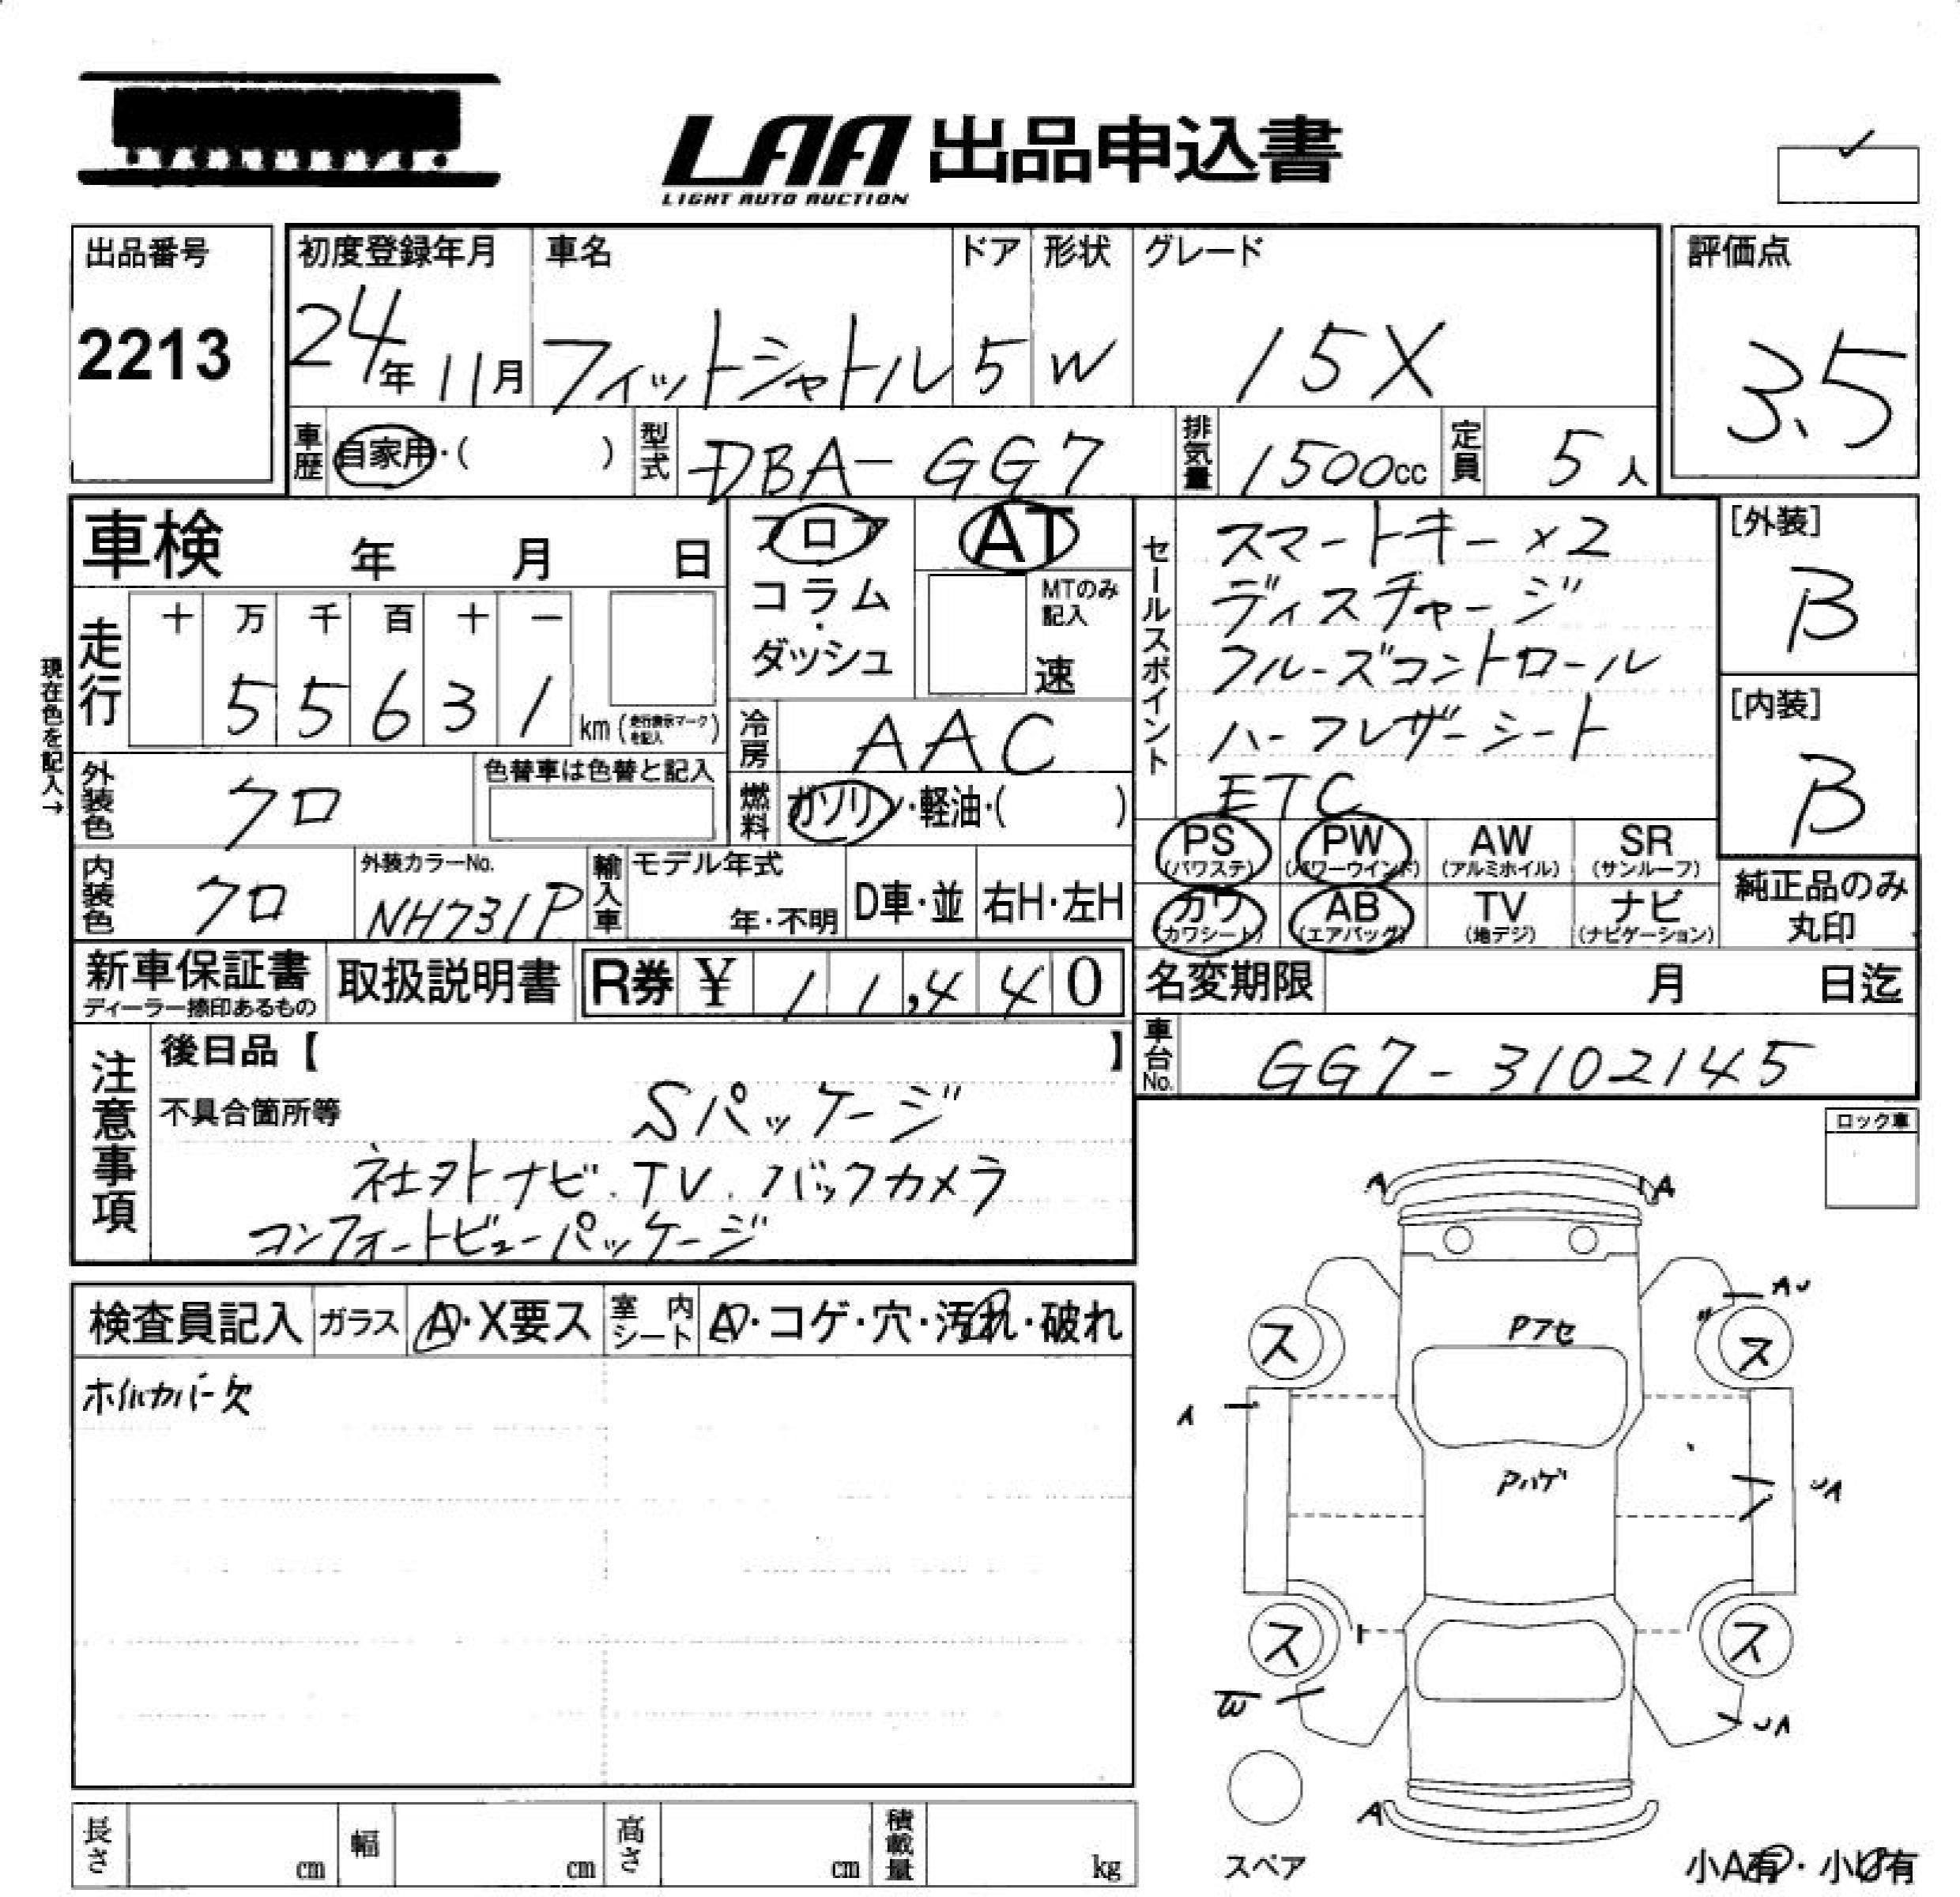 LAA 出品申込書
LIGHT AUTO AUCTION
出品番号
2213
初度登録年月
24年 11月
車名
フィットシャトル
ドア
5
形状
W
グレード
15X
評価点
3.5
車歴 自家用・( )
型式 DBA-GG7
排気量 1500cc
定員 5人
車検 年 月 日
フロア
コラム
・
ダッシュ
AT
MTのみ
記入
速
セールスポイント
スマートキー×2
ディスチャージ
クルーズコントロール
ハーフレザーシート
ETC
[外装]
B
[内装]
B
現在色を記入→
走行
十 万 千 百 十 一
5 5 6 3 1 km(走行表示マークを記入)
冷房 AAC
外装色 クロ
色替車は色替と記入
燃料 ガソリン・軽油・( )
PS (パワステ) PW (パワーウインド) AW (アルミホイル) SR (サンルーフ)
カワ (カワシート) AB (エアバッグ) TV (地デジ) ナビ (ナビゲーション)
純正品のみ
丸印
内装色 クロ
外装カラーNo.
NH731P
輸入車
モデル年式
年・不明
D車・並
右H・左H
新車保証書
ディーラー捺印あるもの
取扱説明書
R券 ¥ 11,440
名変期限 月 日迄
車台No. GG7-3102145
注意事項
後日品【 】
不具合箇所等
Sパッケージ
社外ナビ.TV.バックカメラ
コンフォートビューパッケージ
ロック車
検査員記入 ガラス A・X要ス 室内シート A・コゲ・穴・汚れ・破れ
ホイルカバー欠
A A
AU
Pアセ
ス ス
A
Pハゲ
UA
ス ス
W
UA
A
スペア
小A有・小U有
長さ cm 幅 cm 高さ cm 積載量 kg